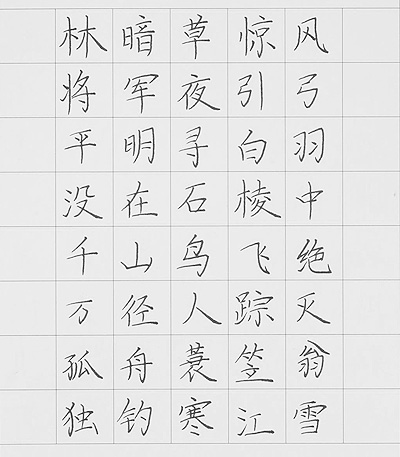 林暗草惊风
将军夜引弓
平明寻白羽
没在石棱中
千山鸟飞绝
万径人踪灭
孤舟蓑笠翁
独钓寒江雪